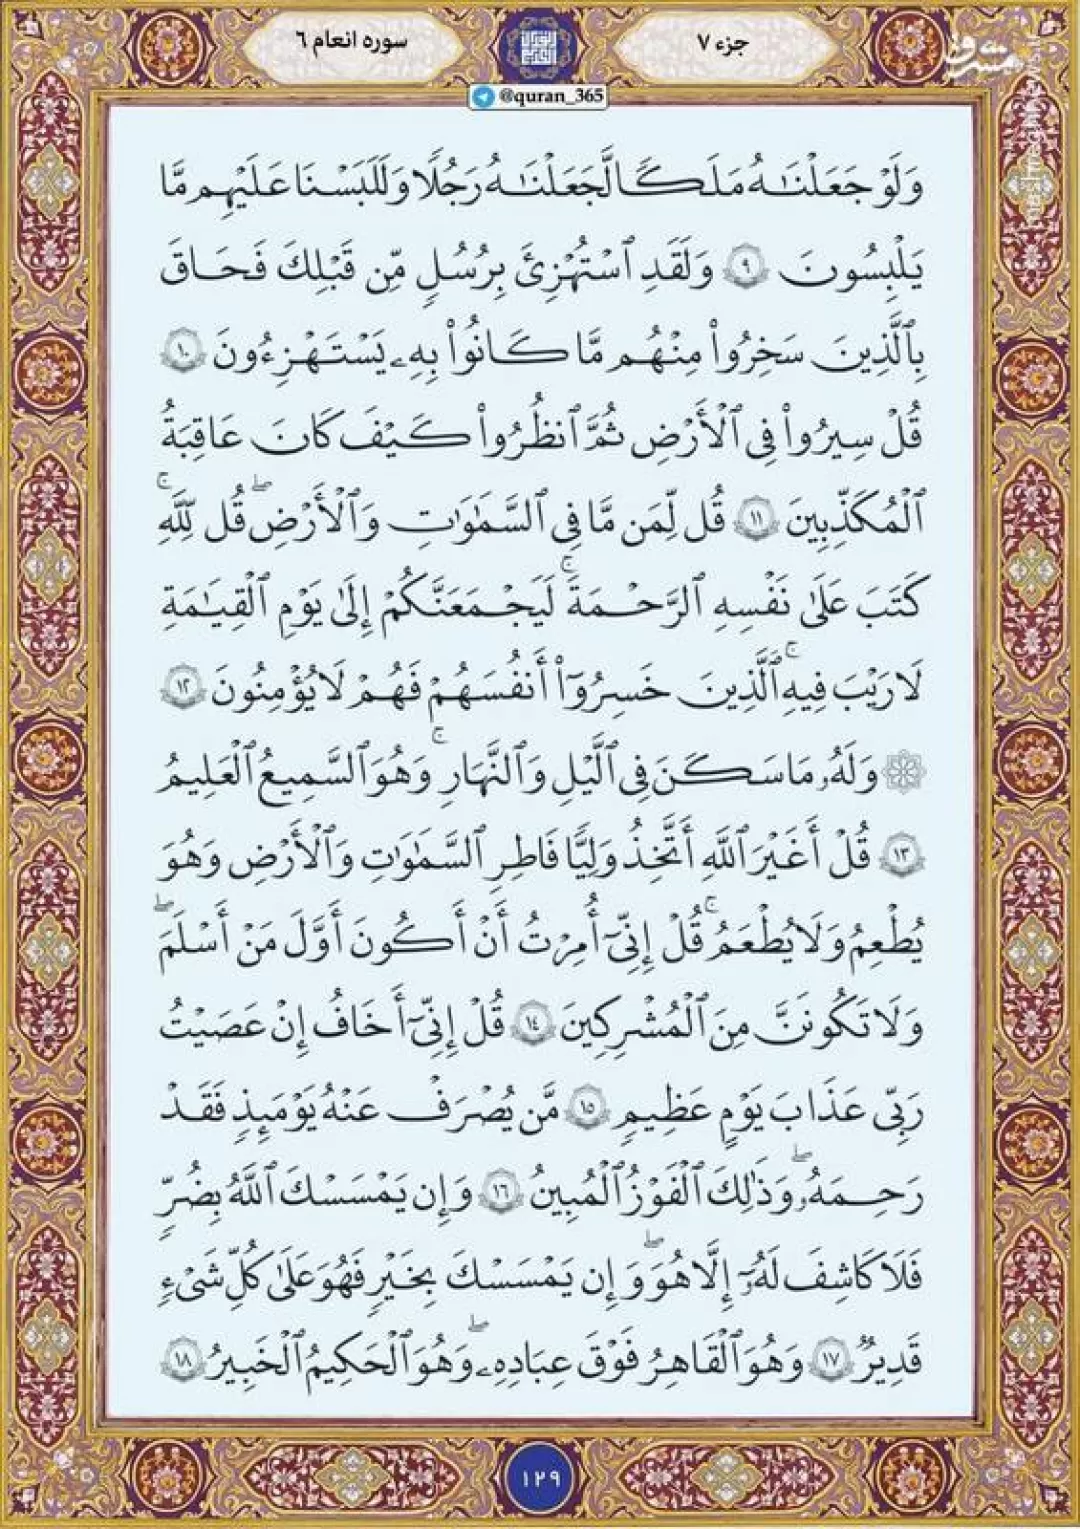 جزء ۷
سوره انعام ۶
@quran_365
مشرق
mashreghnews.ir
وَلَوۡ جَعَلۡنَٰهُ مَلَكٗا لَّجَعَلۡنَٰهُ رَجُلٗا وَلَلَبَسۡنَا عَلَيۡهِم مَّا
يَلۡبِسُونَ ٩ وَلَقَدِ ٱسۡتُهۡزِئَ بِرُسُلٖ مِّن قَبۡلِكَ فَحَاقَ
بِٱلَّذِينَ سَخِرُواْ مِنۡهُم مَّا كَانُواْ بِهِۦ يَسۡتَهۡزِءُونَ ١٠
قُلۡ سِيرُواْ فِي ٱلۡأَرۡضِ ثُمَّ ٱنظُرُواْ كَيۡفَ كَانَ عَٰقِبَةُ
ٱلۡمُكَذِّبِينَ ١١ قُل لِّمَن مَّا فِي ٱلسَّمَٰوَٰتِ وَٱلۡأَرۡضِۖ قُل لِّلَّهِۚ
كَتَبَ عَلَىٰ نَفۡسِهِ ٱلرَّحۡمَةَۚ لَيَجۡمَعَنَّكُمۡ إِلَىٰ يَوۡمِ ٱلۡقِيَٰمَةِ
لَا رَيۡبَ فِيهِۚ ٱلَّذِينَ خَسِرُوٓاْ أَنفُسَهُمۡ فَهُمۡ لَا يُؤۡمِنُونَ ١٢
۞ وَلَهُۥ مَا سَكَنَ فِي ٱلَّيۡلِ وَٱلنَّهَارِۚ وَهُوَ ٱلسَّمِيعُ ٱلۡعَلِيمُ
١٣ قُلۡ أَغَيۡرَ ٱللَّهِ أَتَّخِذُ وَلِيّٗا فَاطِرِ ٱلسَّمَٰوَٰتِ وَٱلۡأَرۡضِ وَهُوَ
يُطۡعِمُ وَلَا يُطۡعَمُۚ قُلۡ إِنِّيٓ أُمِرۡتُ أَنۡ أَكُونَ أَوَّلَ مَنۡ أَسۡلَمَۖ
وَلَا تَكُونَنَّ مِنَ ٱلۡمُشۡرِكِينَ ١٤ قُلۡ إِنِّيٓ أَخَافُ إِنۡ عَصَيۡتُ
رَبِّي عَذَابَ يَوۡمٍ عَظِيمٖ ١٥ مَّن يُصۡرَفۡ عَنۡهُ يَوۡمَئِذٖ فَقَدۡ
رَحِمَهُۥۚ وَذَٰلِكَ ٱلۡفَوۡزُ ٱلۡمُبِينُ ١٦ وَإِن يَمۡسَسۡكَ ٱللَّهُ بِضُرّٖ
فَلَا كَاشِفَ لَهُۥٓ إِلَّا هُوَۖ وَإِن يَمۡسَسۡكَ بِخَيۡرٖ فَهُوَ عَلَىٰ كُلِّ شَيۡءٖ
قَدِيرٞ ١٧ وَهُوَ ٱلۡقَاهِرُ فَوۡقَ عِبَادِهِۦۚ وَهُوَ ٱلۡحَكِيمُ ٱلۡخَبِيرُ ١٨
١٢٩